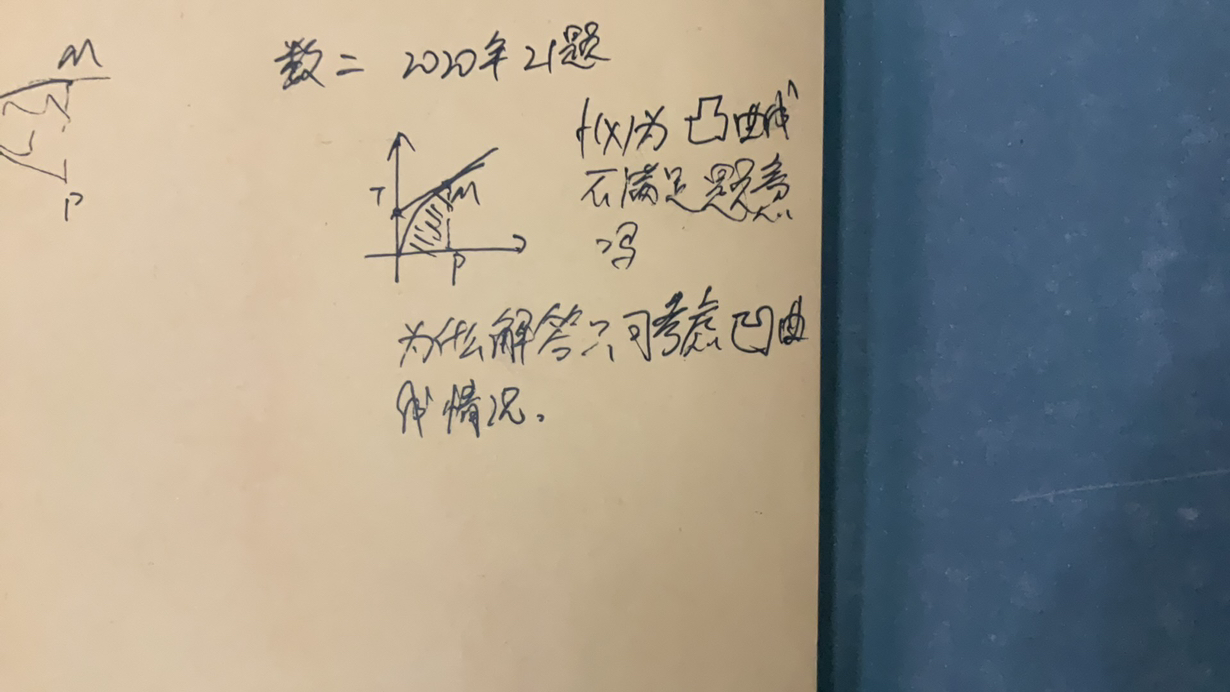 M
P
数二 2020年21题
f(x)为凸曲线
不满足题意
吗
T
M
P
为什么解答只可考虑凹曲
线情况.